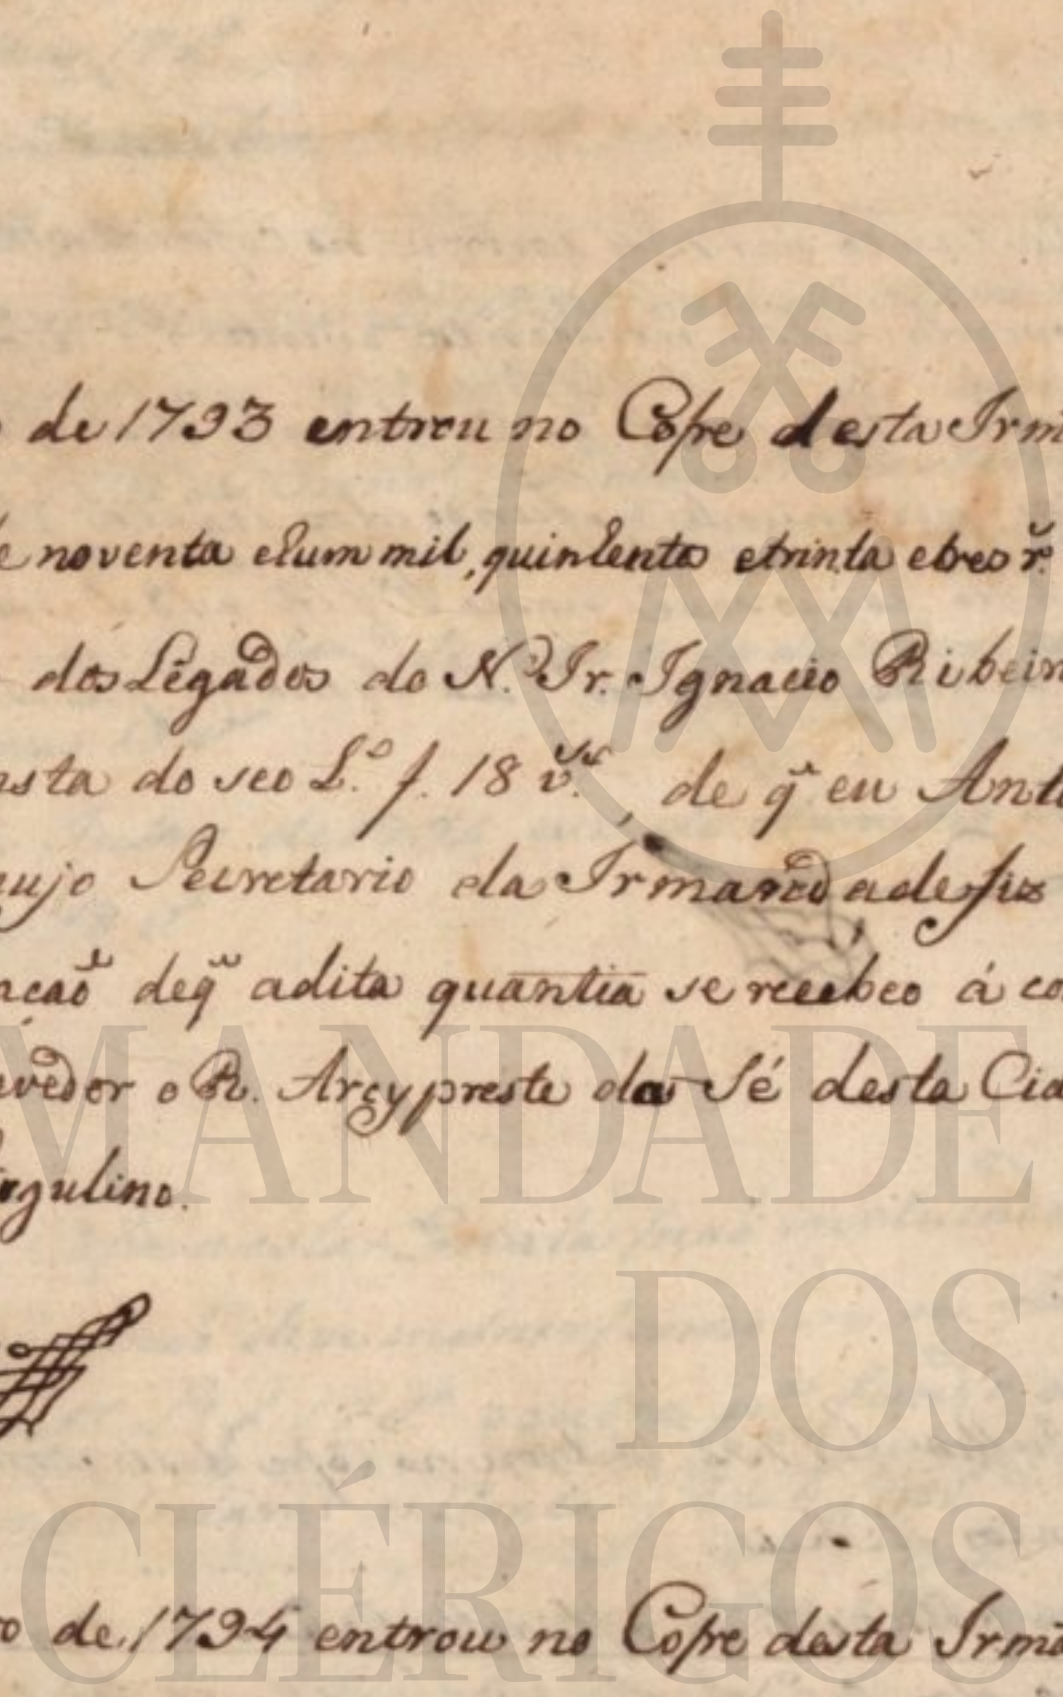 o de 1793 entrou no Cofre desta Irm
de noventa e hum mil, quinhentos e trinta e tres r.s
dos Legados do N. Ir. Ignacio Ribeir
nsta do seo L.º f. 18 v.º, de q̃ eu Anto
aujo Secretario da Irmandade fiz
nçaõ deq̃ adita quantia se recebeo á co
vedor o R. Arcypreste da Sé desta Cid
ngulino.
ro de 1794 entrou no Cofre desta Irm
MANDADE
DOS
CLÉRIGOS